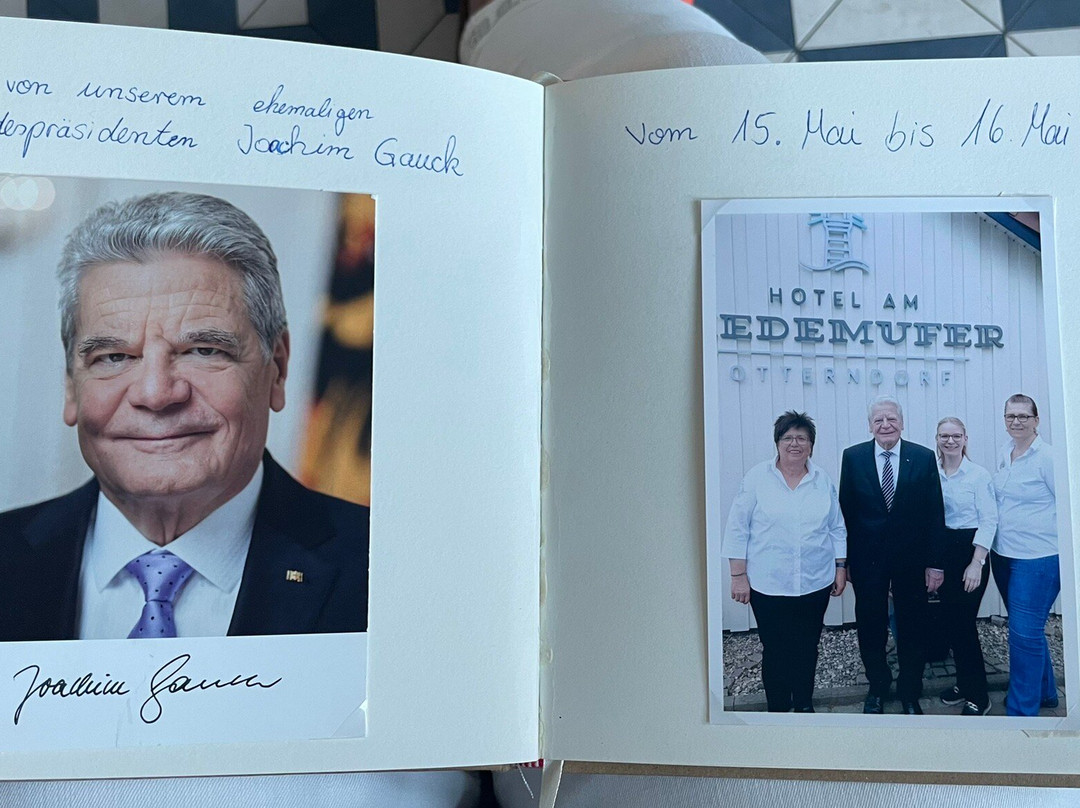 von unserem ehemaligen
despräsidenten Joachim Gauck
Joachim Gauck
vom 15. Mai bis 16. Mai
HOTEL AM
EDEMUFER
OTTERNDORF